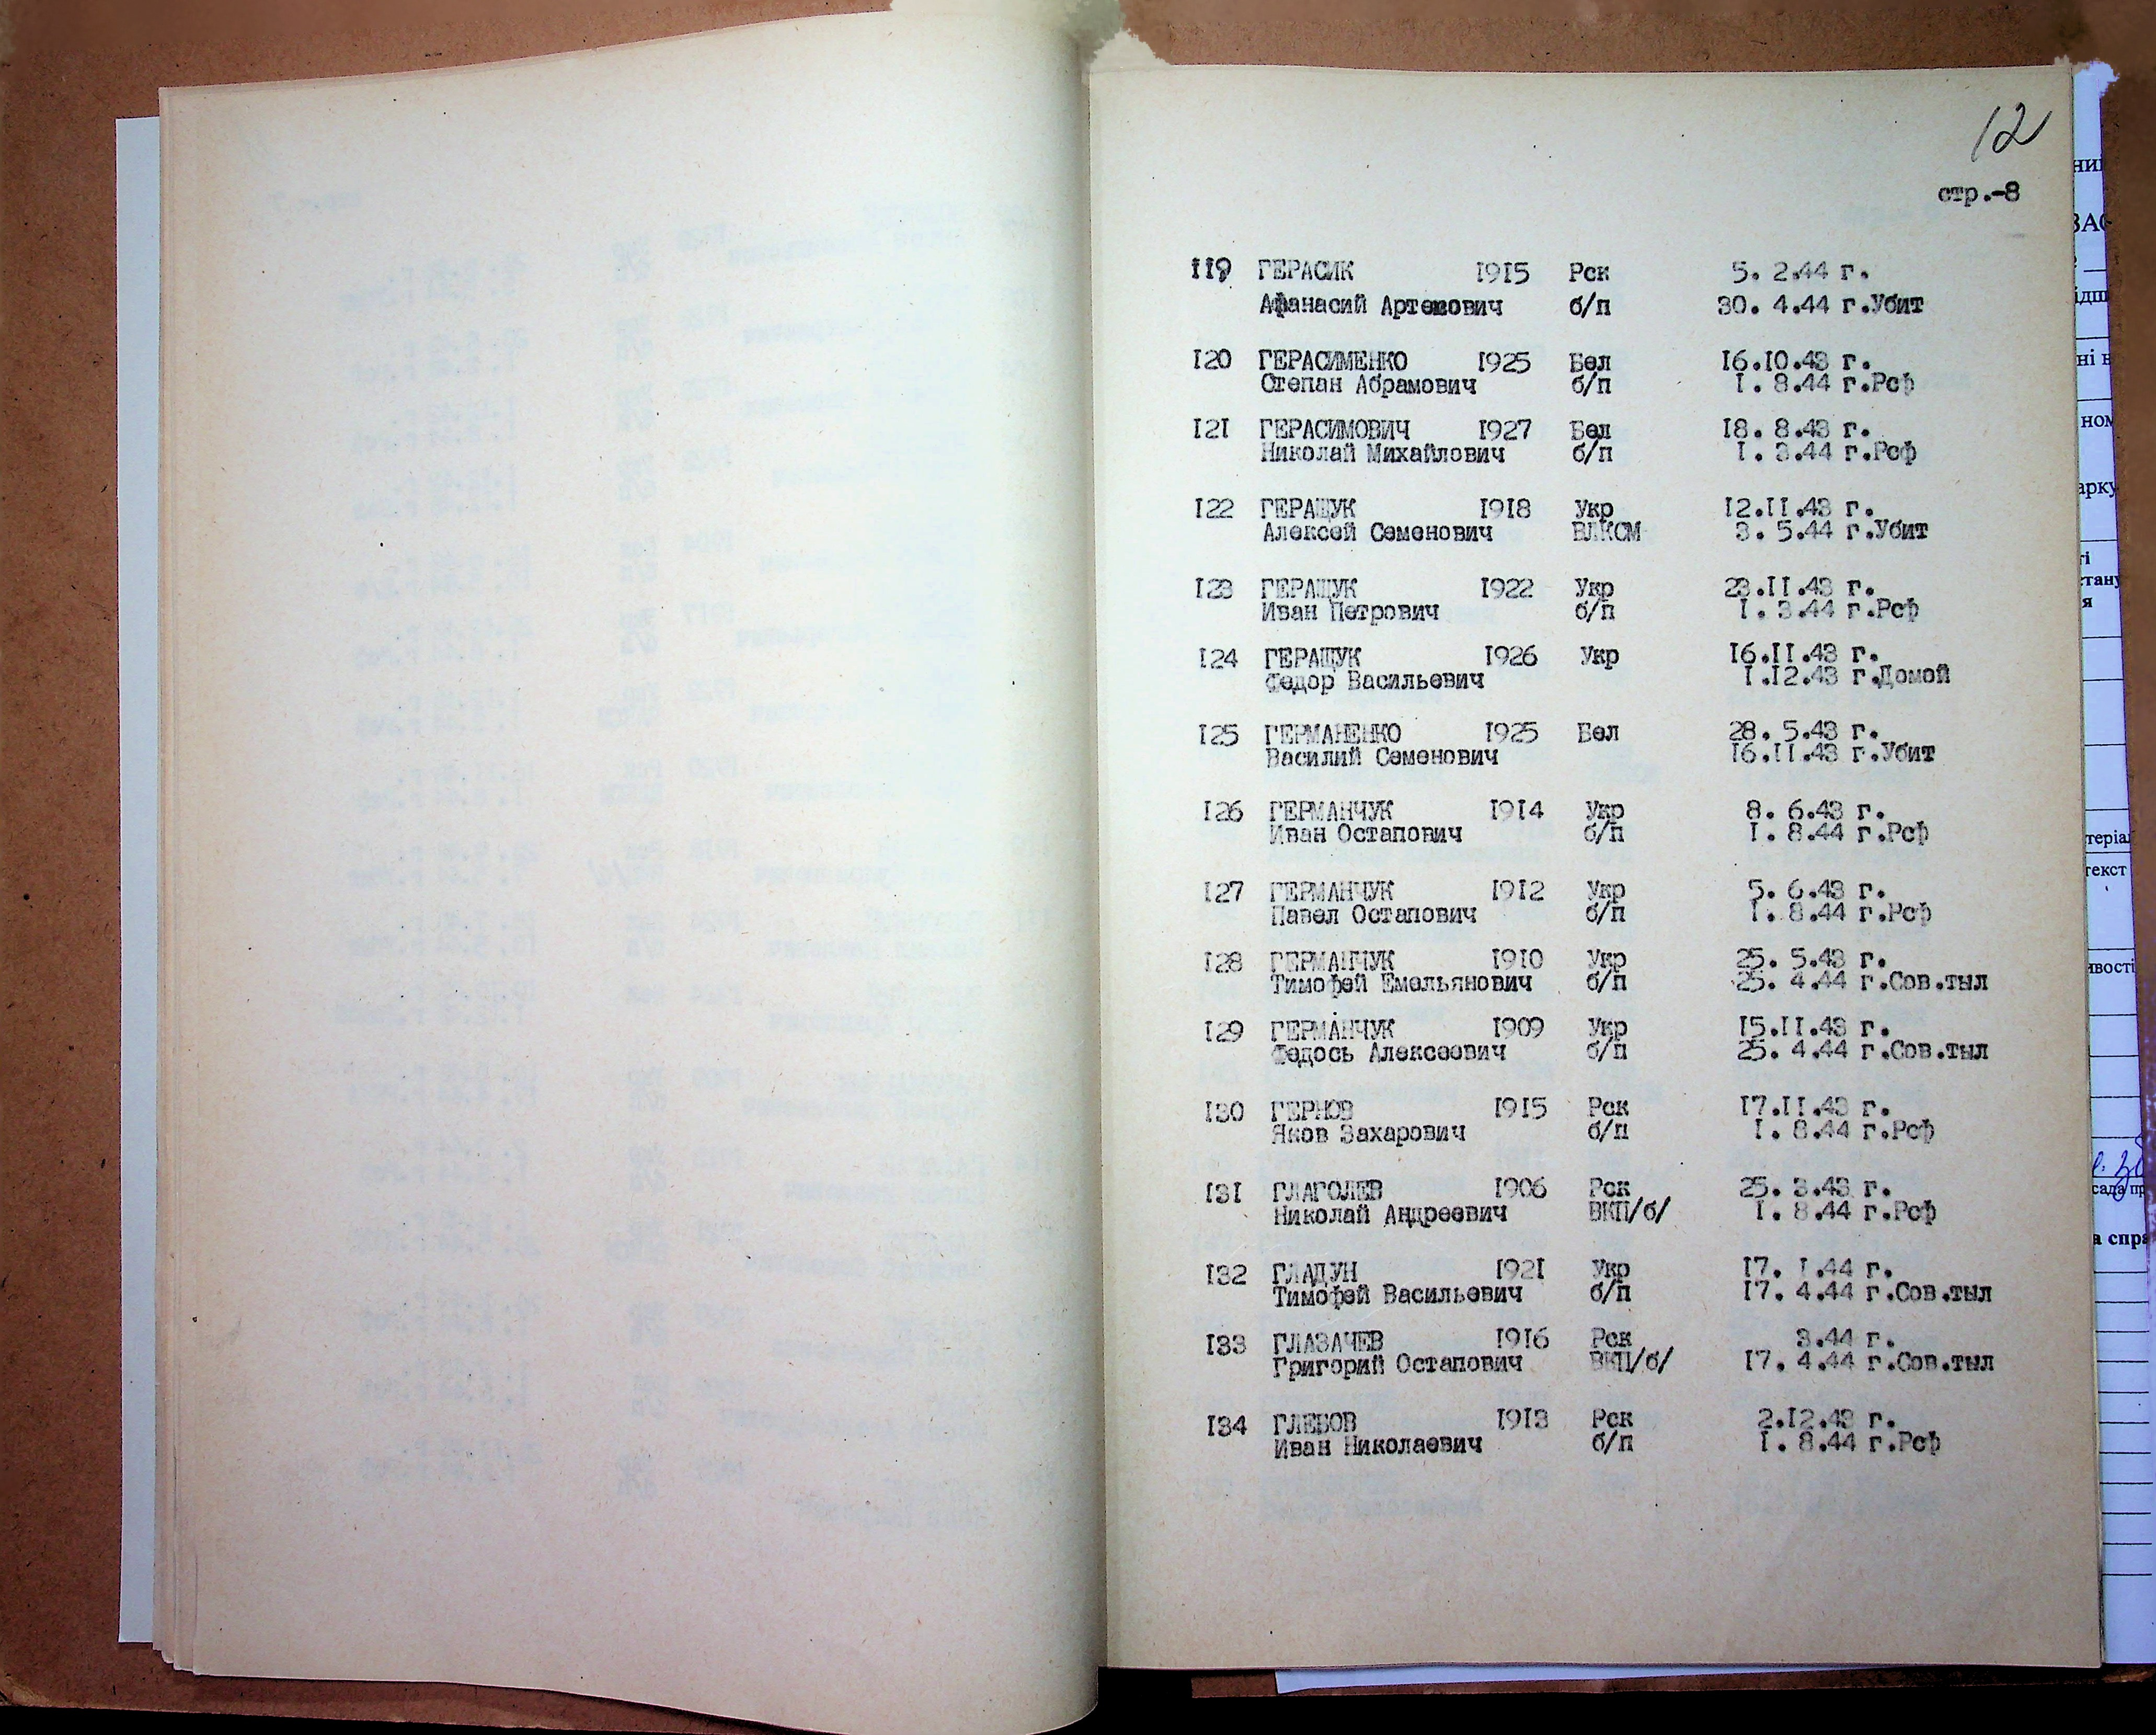 12
стр.-8
119 ГЕРАСИК 1915 Рск 5. 2.44 г.
Афанасий Артемович б/п 30. 4.44 г.Убит
120 ГЕРАСИМЕНКО 1925 Бел 16.10.43 г.
Степан Абрамович б/п 1. 8.44 г.Рсф
121 ГЕРАСИМОВИЧ 1927 Бел 18. 8.43 г.
Николай Михайлович б/п 1. 3.44 г.Рсф
122 ГЕРАЩУК 1918 Укр 12.11.43 г.
Алексей Семенович ВЛКСМ 3. 5.44 г.Убит
123 ГЕРАЩУК 1922 Укр 23.11.43 г.
Иван Петрович б/п 1. 3.44 г.Рсф
124 ГЕРАЩУК 1926 Укр 16.11.43 г.
Федор Васильевич 1.12.43 г.Домой
125 ГЕРМАНЕНКО 1925 Бел 28. 5.43 г.
Василий Семенович 16.11.43 г.Убит
126 ГЕРМАНЧУК 1914 Укр 8. 6.43 г.
Иван Остапович б/п 1. 8.44 г.Рсф
127 ГЕРМАНЧУК 1912 Укр 5. 6.43 г.
Павел Остапович б/п 1. 8.44 г.Рсф
128 ГЕРМАНЧУК 1910 Укр 25. 5.43 г.
Тимофей Емельянович б/п 25. 4.44 г.Сов.тыл
129 ГЕРМАНЧУК 1909 Укр 15.11.43 г.
Федось Алексеевич б/п 25. 4.44 г.Сов.тыл
130 ГЕРНОВ 1915 Рск 17.11.43 г.
Яков Захарович б/п 1. 8.44 г.Рсф
131 ГЛАГОЛЕВ 1906 Рск 25. 3.43 г.
Николай Андреевич ВКП/б/ 1. 8.44 г.Рсф
132 ГЛАДУН 1921 Укр 17. 1.44 г.
Тимофей Васильевич б/п 17. 4.44 г.Сов.тыл
133 ГЛАЗАЧЕВ 1916 Рск 3.44 г.
Григорий Остапович ВКП/б/ 17. 4.44 г.Сов.тыл
134 ГЛЕБОВ 1913 Рск 2.12.43 г.
Иван Николаевич б/п 1. 8.44 г.Рсф